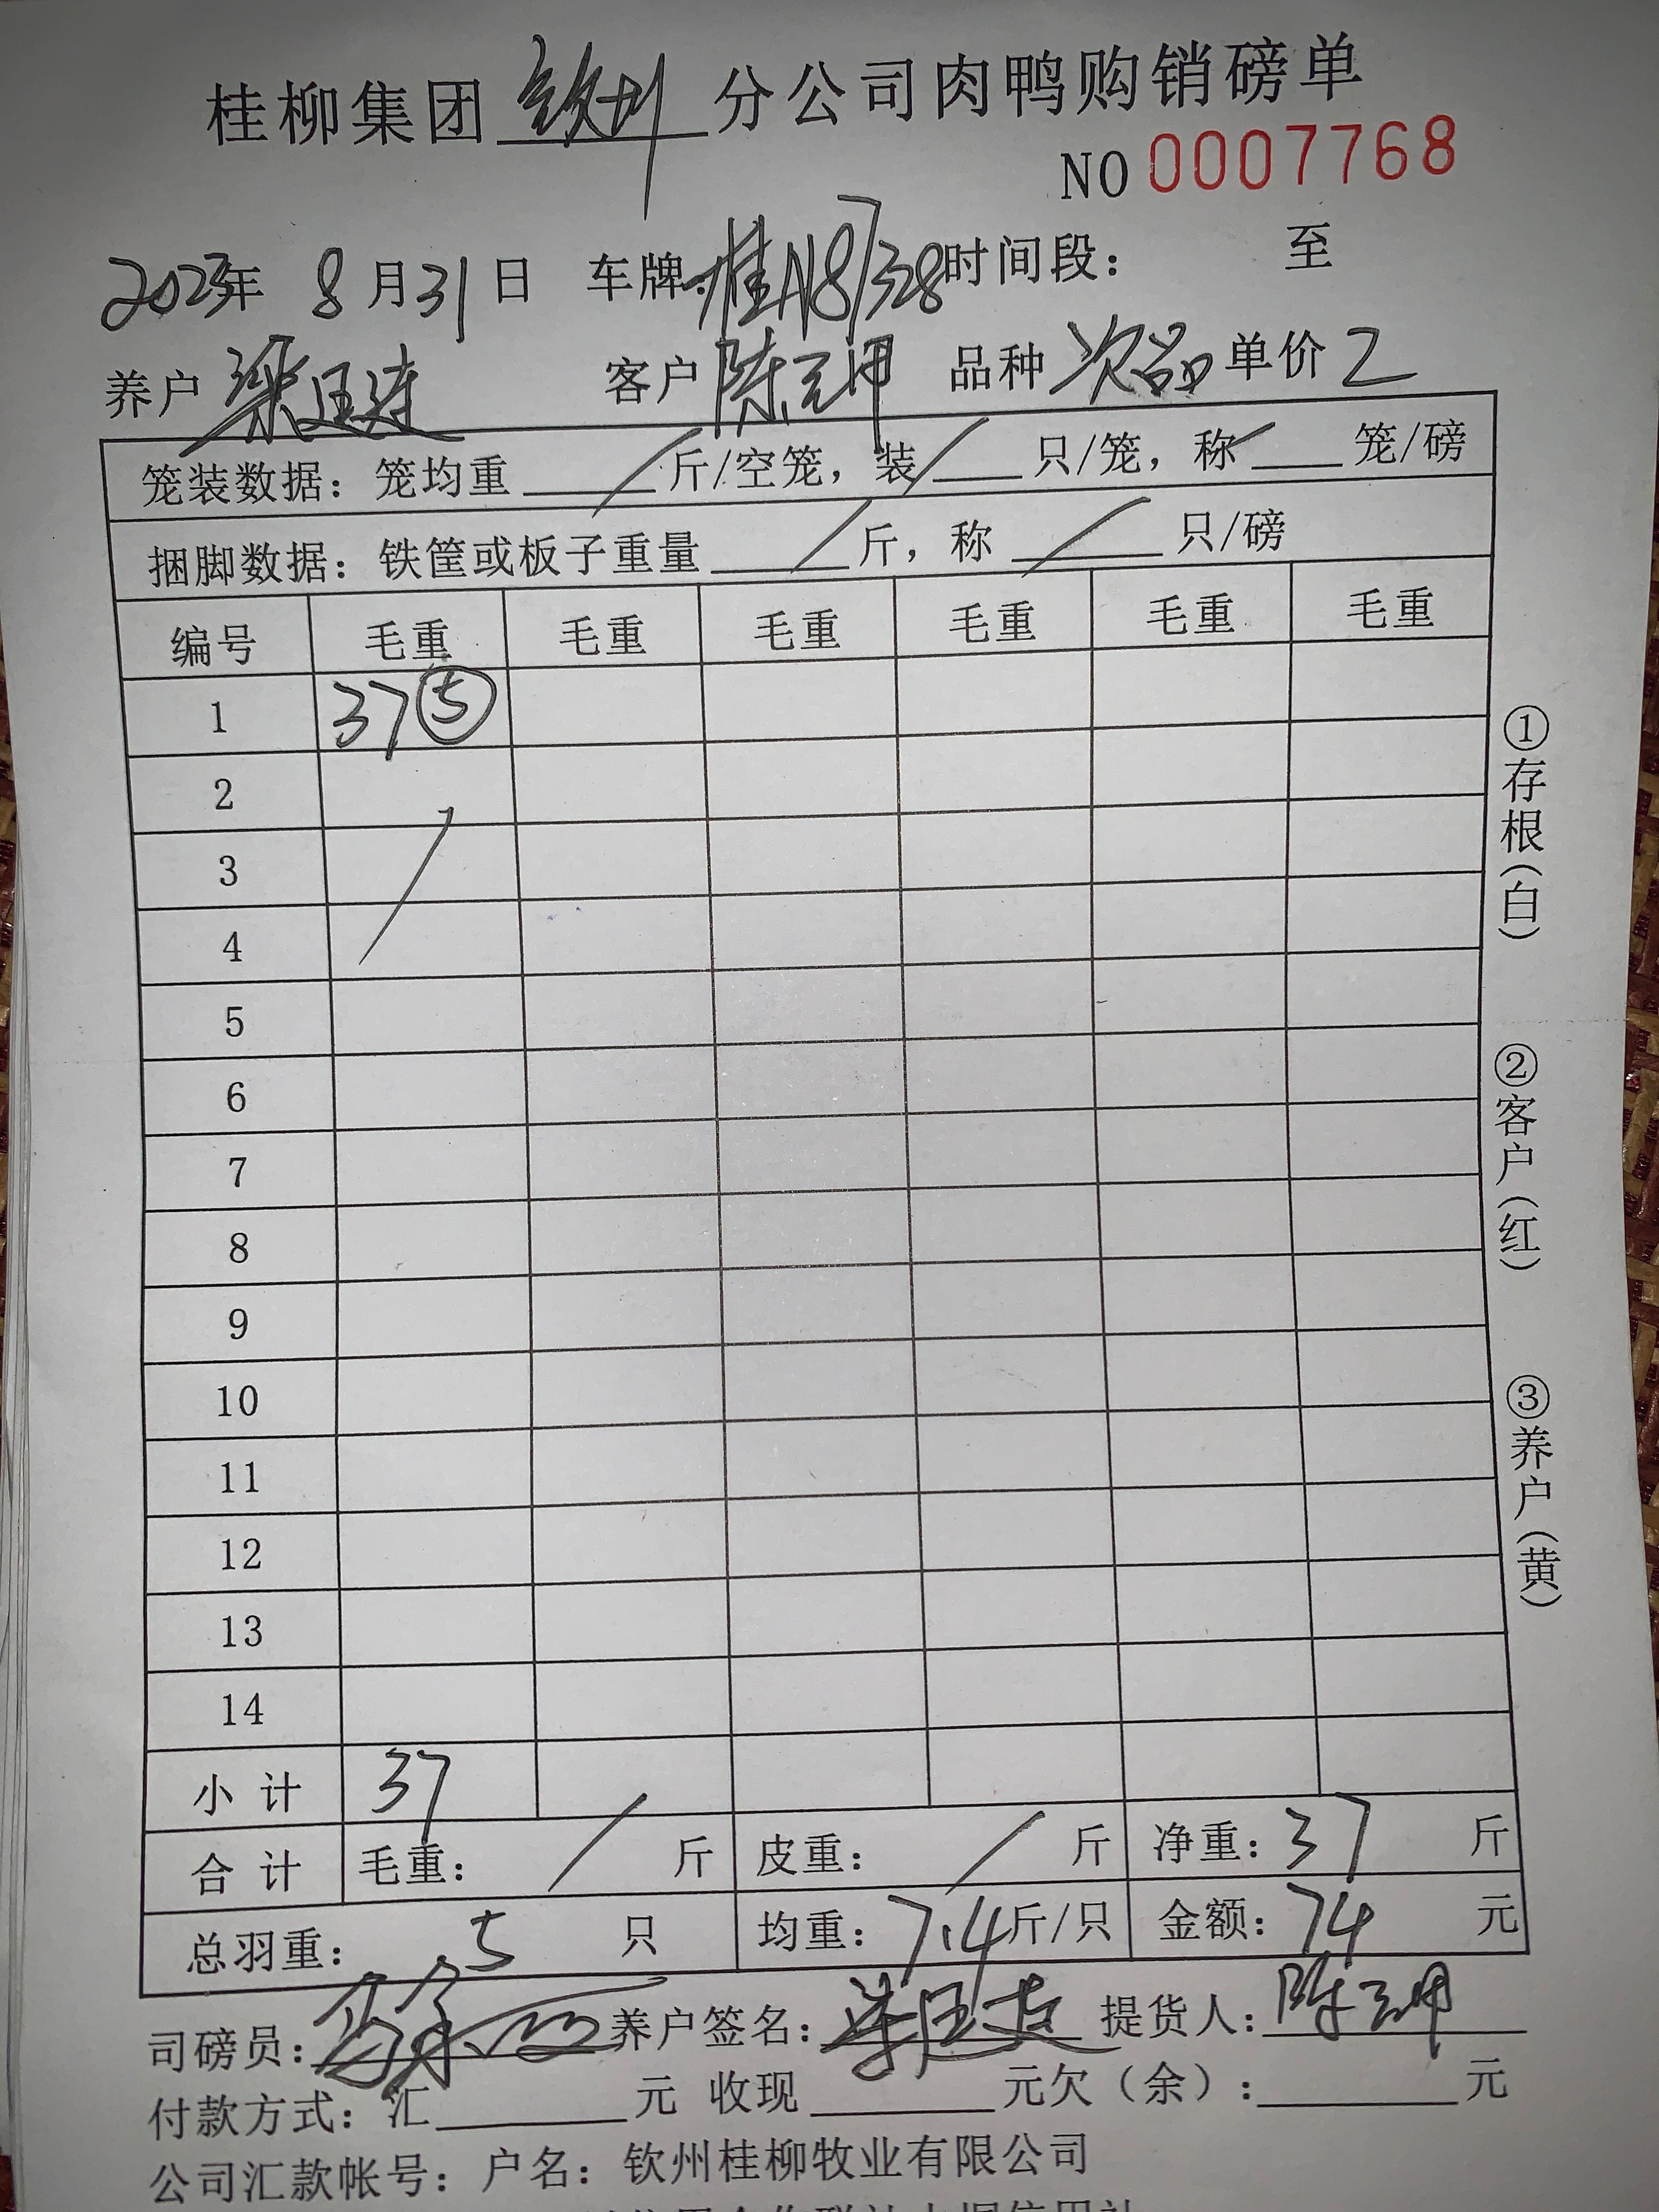 桂柳集团钦州分公司肉鸭购销磅单
NO 0007768
2023年 8月31日 车牌:桂A8J328时间段: 至
养户 梁旺连 客户 陈云坤 品种 次品 单价 2
笼装数据:笼均重 / 斤/空笼,装 / 只/笼,称 / 笼/磅
捆脚数据:铁筐或板子重量 / 斤,称 / 只/磅
编号 毛重 毛重 毛重 毛重 毛重 毛重
1 37⑤
2
3
4
5
6
7
8
9
10
11
12
13
14
小计 37
合计 毛重: / 斤 皮重: / 斤 净重:37 斤
总羽重: 5 只 均重:7.4斤/只 金额:74 元
司磅员: 养户签名:梁旺连 提货人:陈云坤
付款方式:汇 元 收现 元欠(余): 元
公司汇款帐号:户名:钦州桂柳牧业有限公司
①存根(白)
②客户(红)
③养户(黄)